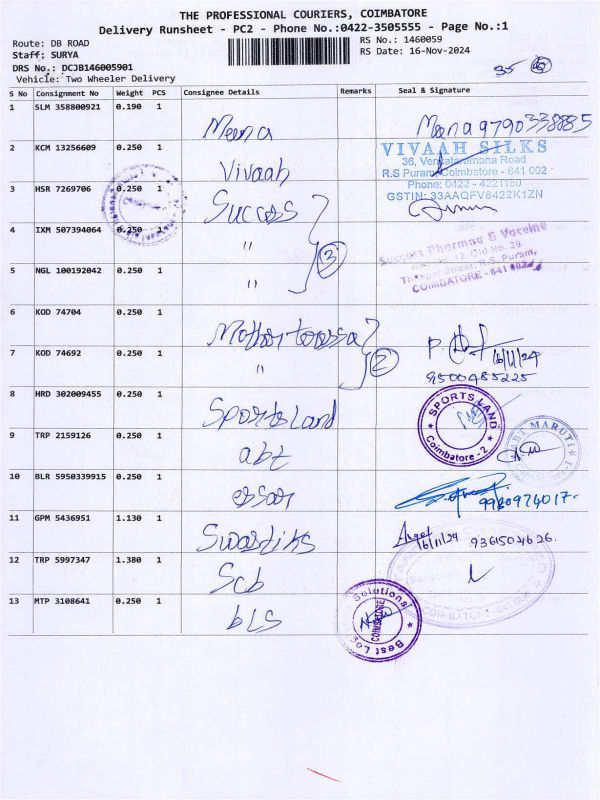 THE PROFESSIONAL COURIERS, COIMBATORE
Delivery Runsheet - PC2 - Phone No.:0422-3505555 - Page No.:1
Route: DB ROAD RS No.: 1460059
Staff: SURYA RS Date: 16-Nov-2024
DRS No.: DCJB146005901 35
Vehicle: Two Wheeler Delivery
S No Consignment No Weight PCS Consignee Details Remarks Seal & Signature
1 SLM 358800921 0.190 1 Meena Meena 9790338885
2 KCM 13256609 0.250 1 Vivaah
VIVAAH SILKS
36, Venkataramana Road
R.S Puram, Coimbatore - 641 002
Phone: 0422 - 4221180
GSTIN: 33AAQFV8422K1ZN
3 HSR 7269706 0.250 1 Success
4 IXM 507394064 0.250 1 " 3
Success Pharmaa & Vaccine
12, Old No. 29
Street, R.S. Puram,
COIMBATORE - 641 002
5 NGL 100192042 0.250 1 "
6 KOD 74704 0.250 1 Mother teressa
7 KOD 74692 0.250 1 " 2 16/11/24
9500485225
8 HRD 302009455 0.250 1 Sportsland
SPORTS LAND
Coimbatore - 2
9 TRP 2159126 0.250 1 abt
ABT MARUTI
10 BLR 5950339915 0.250 1 essar
11 GPM 5436951 1.130 1 Swastiks 16/11/24 9361504626.
12 TRP 5997347 1.380 1 Scb
13 MTP 3108641 0.250 1 bLS
Solutions
COIMBATORE